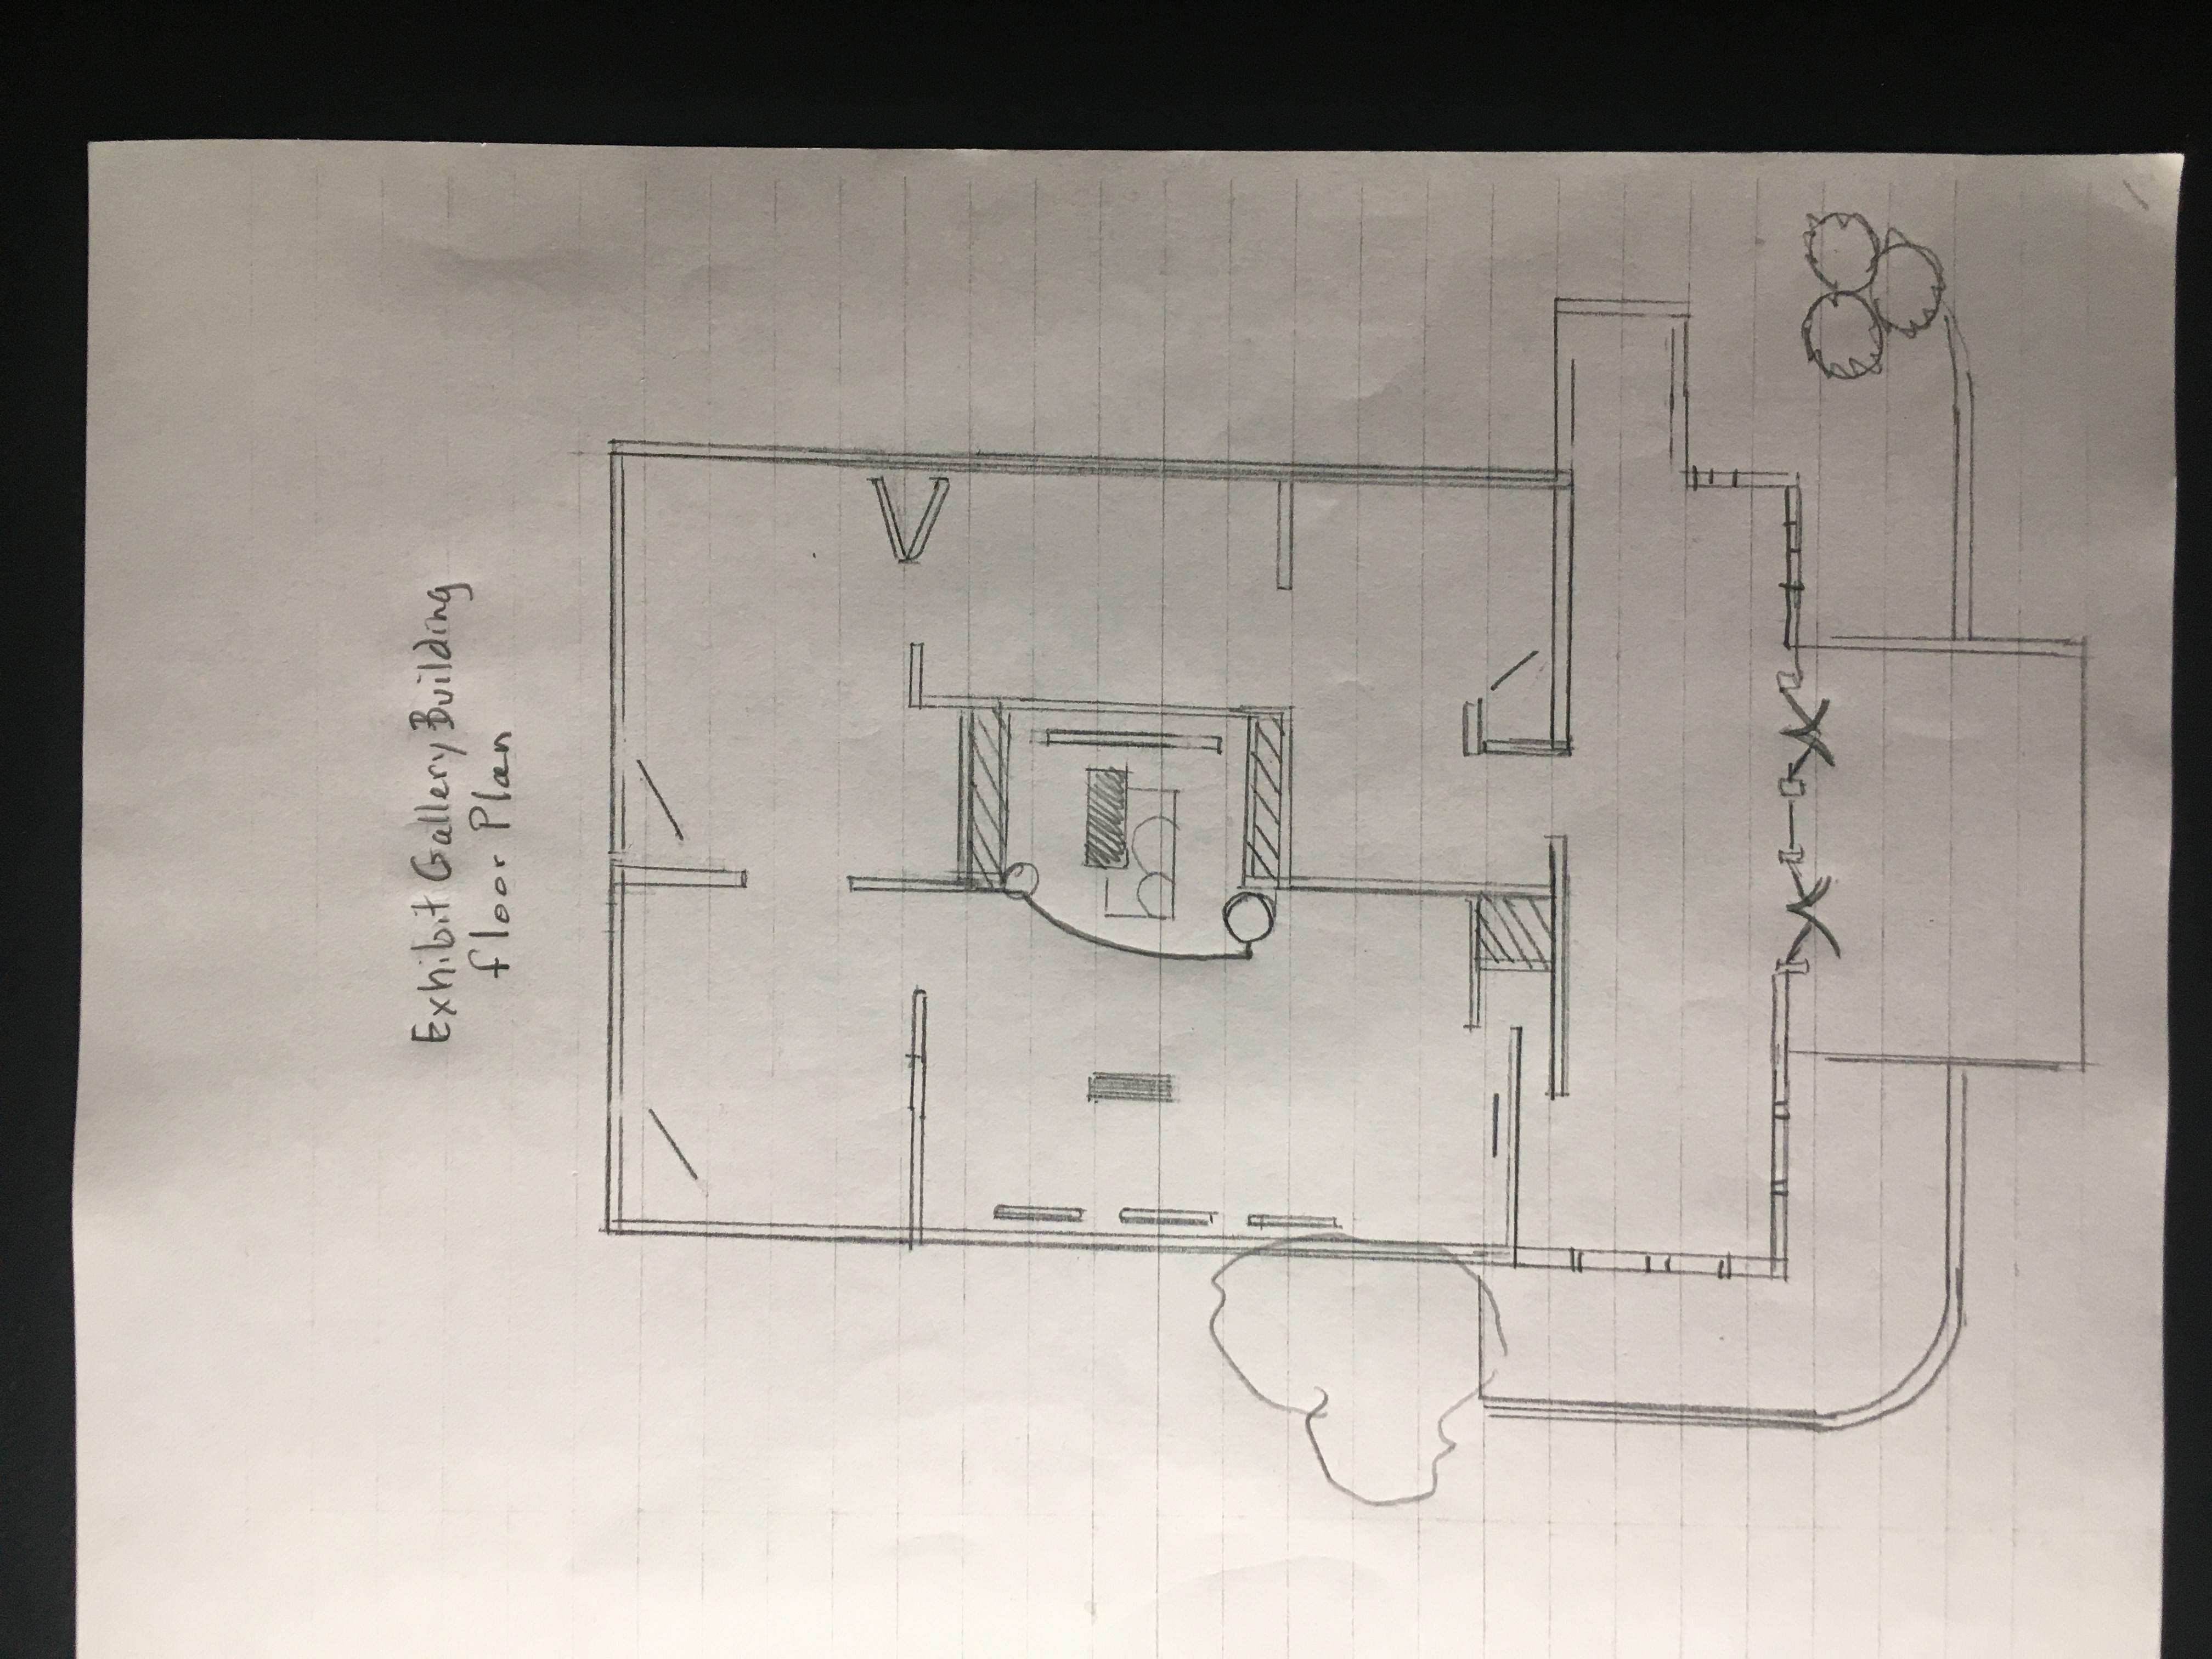 Exhibit Gallery Building
floor Plan